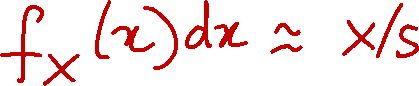 f_X(x)dx ≈ x/s